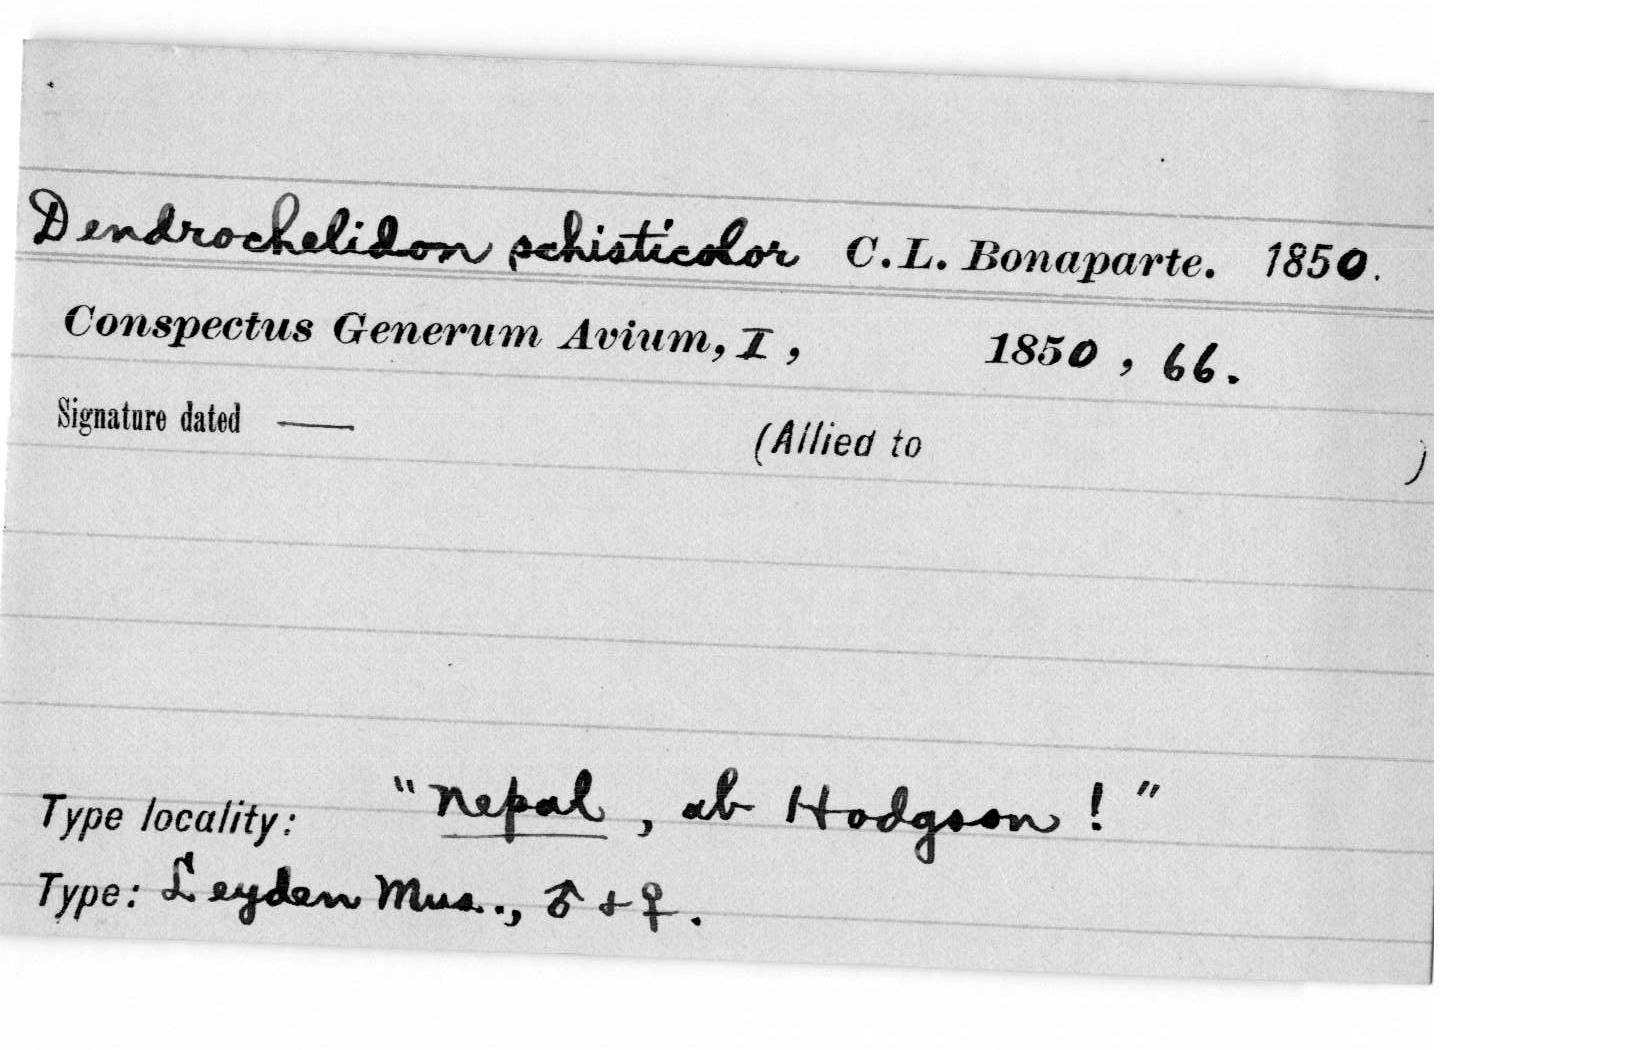 Dendrochelidon schisticolor C.L. Bonaparte. 1850.
Conspectus Generum Avium, I, 1850, 66.
Signature dated — (Allied to )
Type locality: "Nepal, ab Hodgson!"
Type: Leyden Mus., ♂ + ♀.